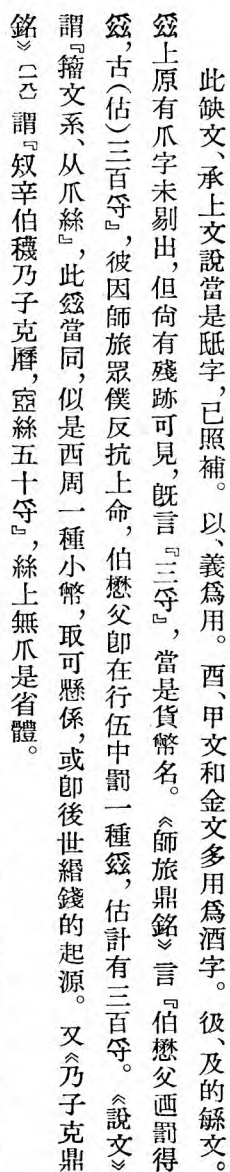 此缺文、承上文說當是砥字，已照補。以、義爲用。酉、甲文和金文多用爲酒字。彶、及的繇文。
𢇇上原有爪字未剔出，但尙有殘跡可見，旣言『三寽』，當是貨幣名。《師旅鼎銘》言『伯懋父迺罰得
𢇇，古(估)三百寽』，彼因師旅眾僕反抗上命，伯懋父卽在行伍中罰一種𢇇，估計有三百寽。《說文》
謂『籒文系、从爪絲』，此𢇇當同，似是西周一種小幣，取可懸係，或卽後世緡錢的起源。又《乃子克鼎
銘》〔二八〕謂『㚔辛伯穢乃子克曆，㝨絲五十寽』，絲上無爪是省體。